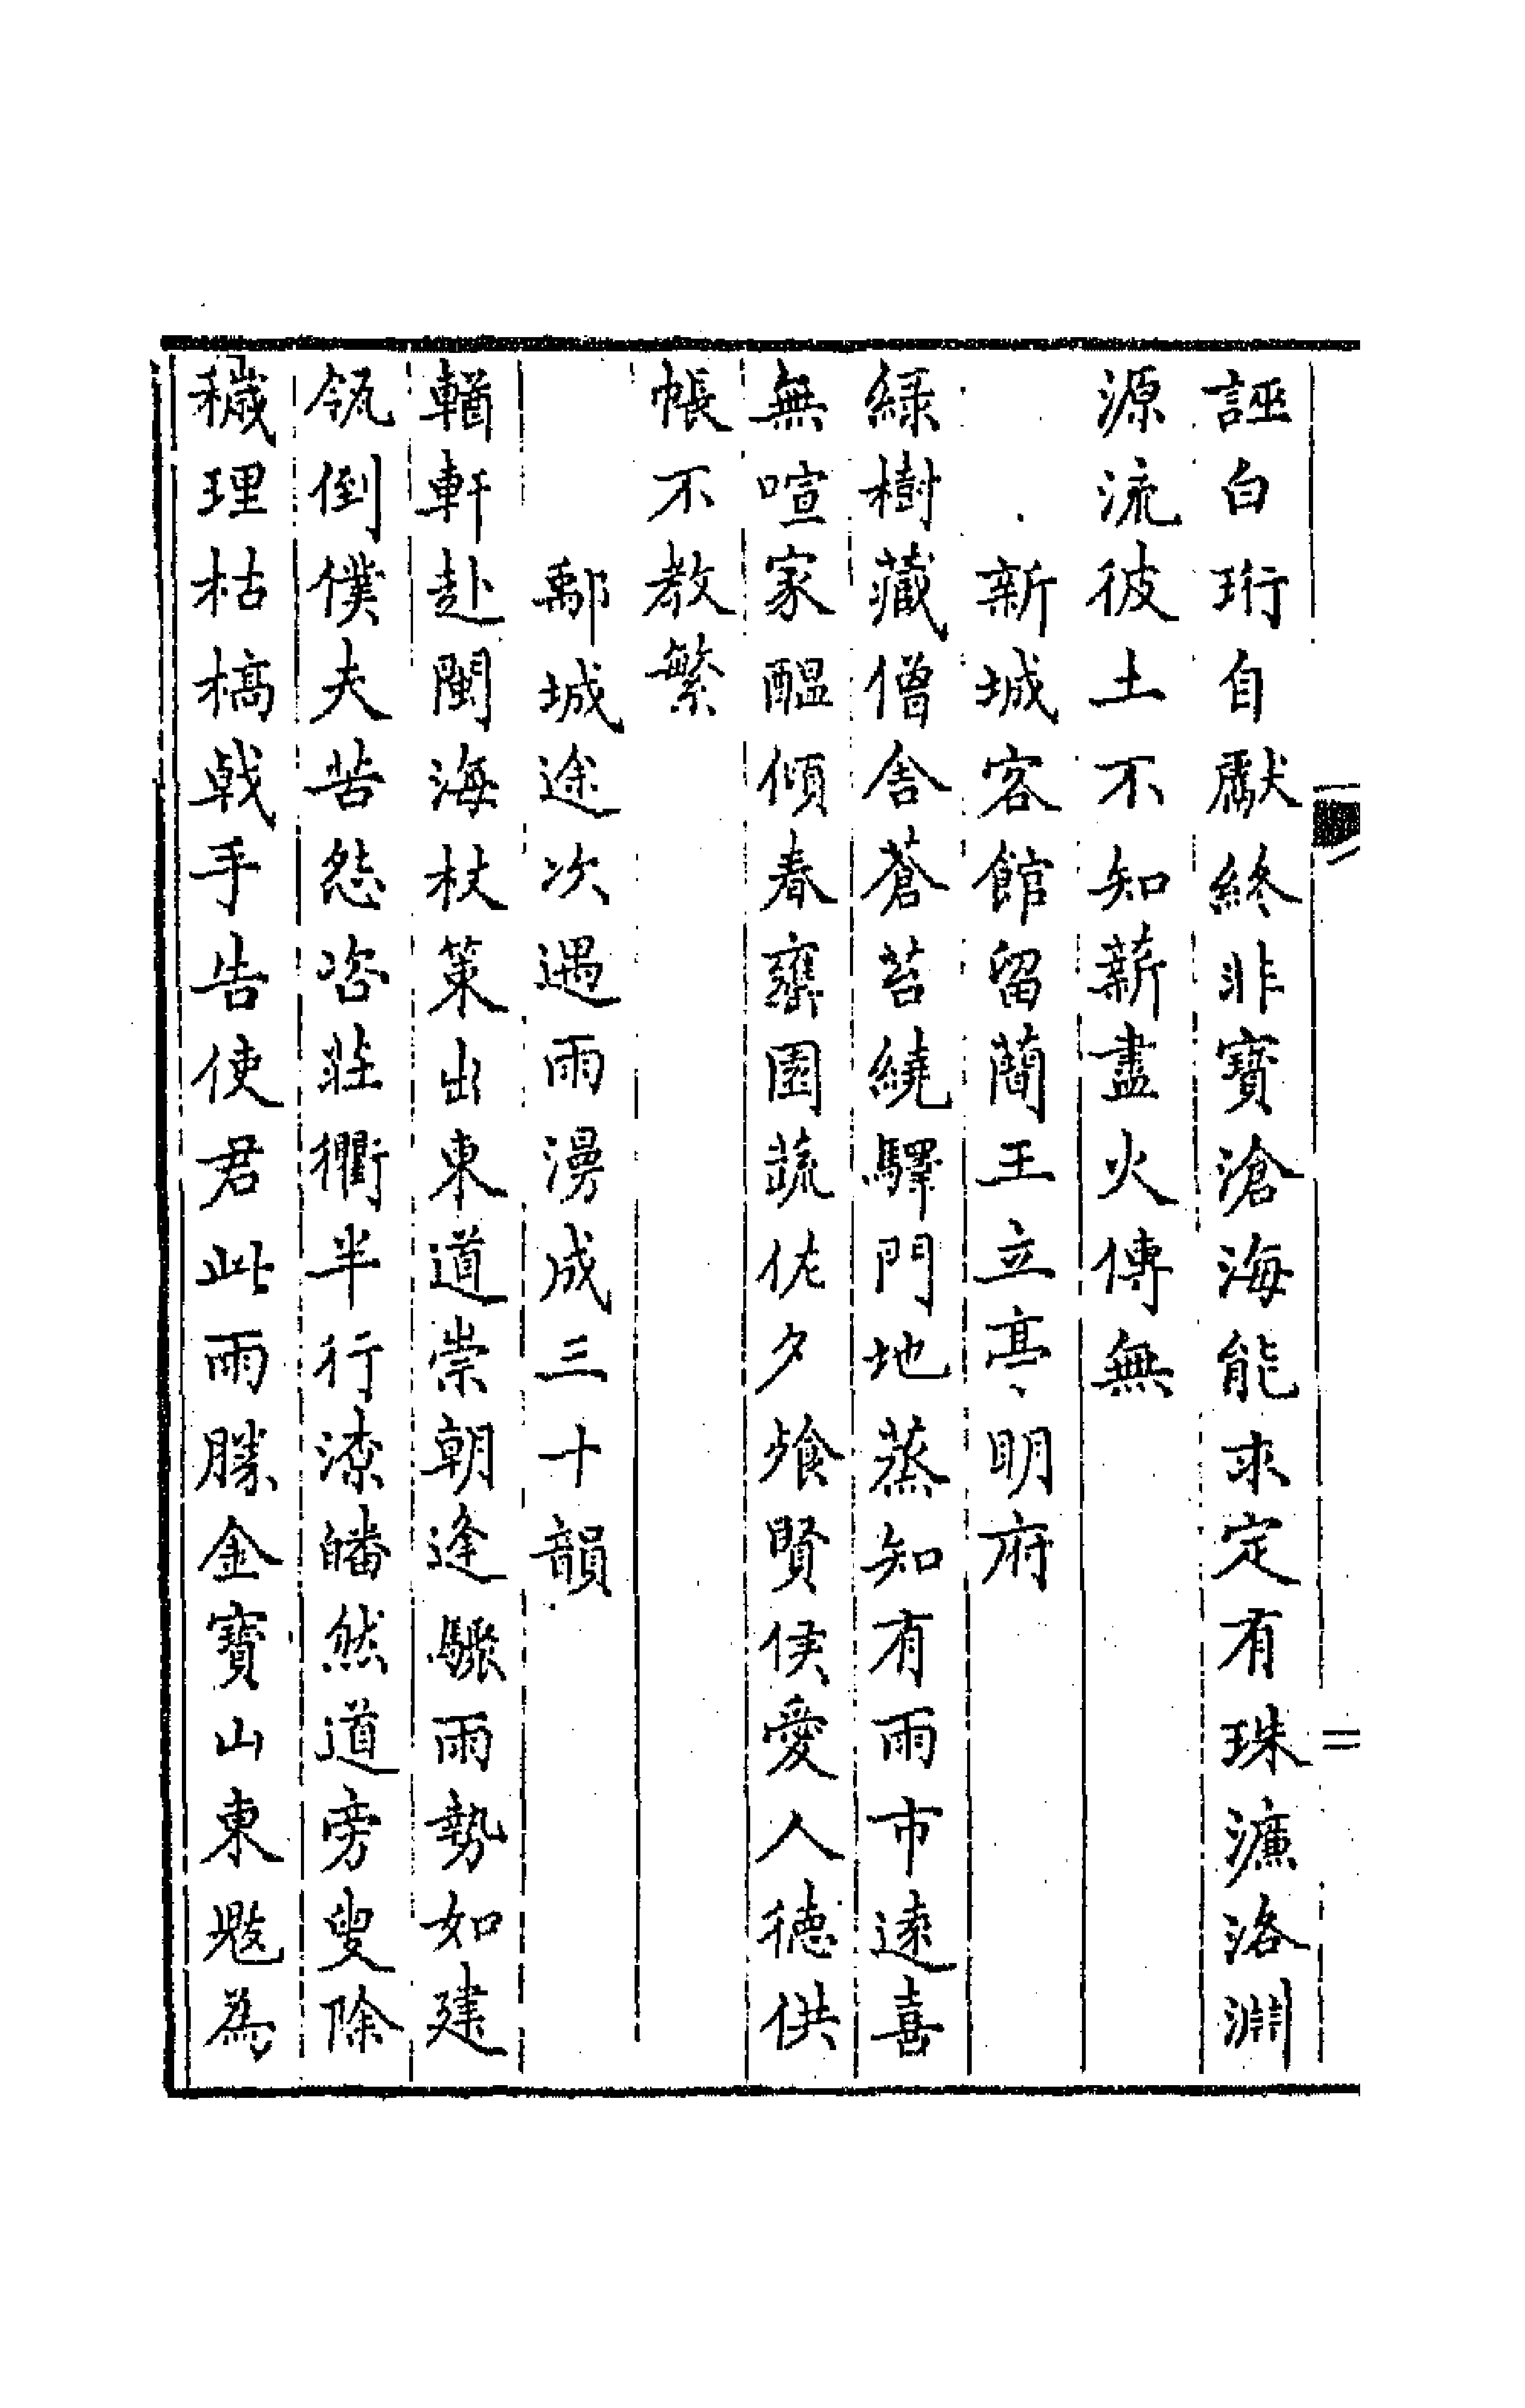 誣白珩自獻終非寶滄海能求定有珠濂洛淵
源流彼土不知薪盡火傳無
新城客館留蘭王立亭明府
綠樹藏僧舍蒼苔繞驛門地蒸知有雨市遠喜
無喧家醖傾春甕園蔬佐夕飱賢侯愛人德供
帳不教繁
鄢城途次遇雨漫成三十韻
輶軒赴閩海杖策出東道崇朝逢驟雨勢如建
瓴倒僕夫苦怨咨莊衢半行潦皤然道旁叟除
穢理枯槁戟手告使君此雨勝金寶山東尠為
二